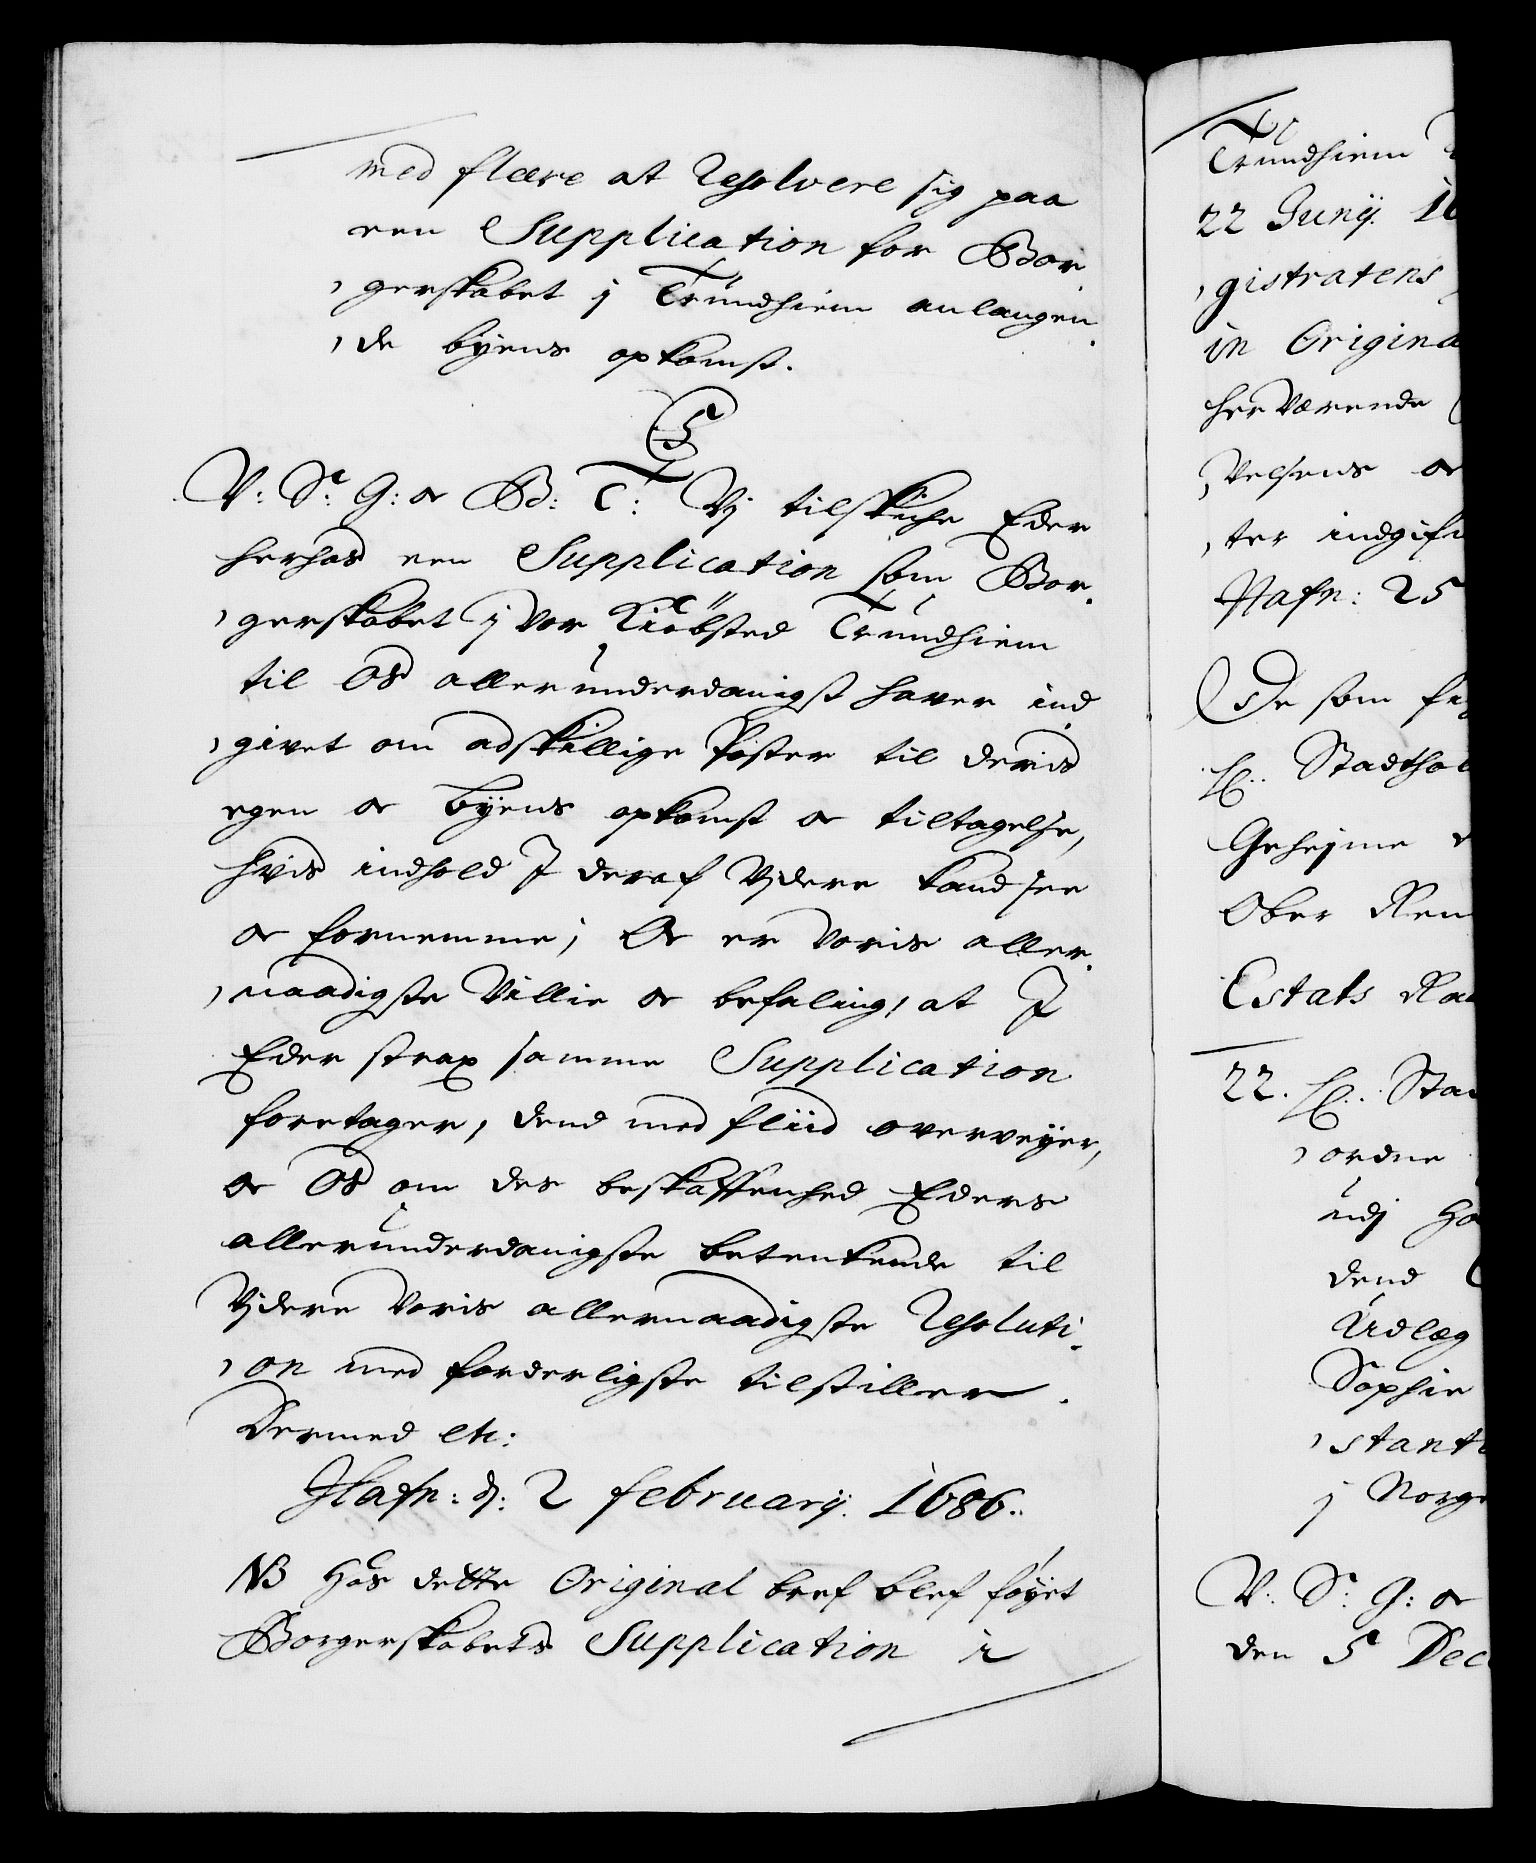 med fleere at Resolvere sig paa
een Supplication for Bor,
,gerskabet j Trundhiem anlangen,
,de byens opkomst.
C5
V: S: G: oc B: T: Vj tilskiche Eder
herhos een Supplication som Bor,
,gerskabet j vor Kiöbsted Trundhiem
til Os allerunderdanigst haver ind,
,givet om adskillige Poster til deris
egen oc byens opkomst oc tiltagelse,
hvis indhold I deraf Vjdere kand see
oc fornemme; Oc er Voris aller,
,naadigste Villie oc befaling, at I
Eder strax samme Supplication
foretager, dend med fliid overveyer,
oc Os om des beskaffenhed Eders
allerunderdanigste betenkende til
Vjdere Voris allernaadigste Resoluti,
,on med forderligste tilstiller.
Dermed etc:
Hafn: d: 2 februarij. 1686.
NB Hos dette Original bref blef föyet
Borgerskabets Supplication i
Trundhiem
22 Junij. 16
,gistratens
in Origina
her Værende
,velsens oc
,ter indgifu
Hafn: 25
De som fi
H: Stadthol
Geheime
Ober Ren
Estats Ra
22. H: Sta
,ordne
udj Ho
dend
Udlæg
Sophie
,stanti
j Norge
V: S: G: oc
den 5 Dec